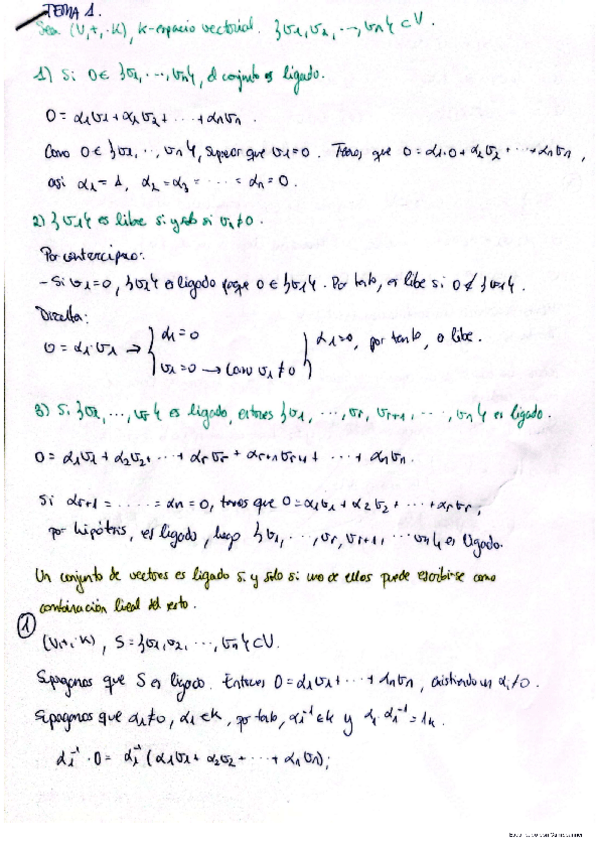 TEMA 1.
Sea (V,+,·K), K-espacio vectorial. {v1, v2, ..., vn} ⊂ V.
1) Si 0 ∈ {v1, ..., vn}, el conjunto es ligado.
0 = α1v1 + α2v2 + ... + αnvn.
Como 0 ∈ {v1, ..., vn}, suponer que v1 = 0. Tenemos que 0 = α1·0 + α2v2 + ... + αnvn,
así α1 = 1, α2 = α3 = ... = αn = 0.
2) {v1} es libre si y solo si v1 ≠ 0.
Por contrarrecíproco:
- Si v1 = 0, {v1} es ligado porque 0 ∈ {v1}. Por tanto, es libre si 0 ∉ {v1}.
Directa:
0 = α1·v1 → { α1 = 0
v1 = 0 → Como v1 ≠ 0 } α1 = 0, por tanto, es libre.
3) Si {v1, ..., vr} es ligado, entonces {v1, ..., vr, vr+1, ..., vn} es ligado.
0 = α1v1 + α2v2 + ... + αrvr + αr+1vr+1 + ... + αnvn.
Si αr+1 = ... = αn = 0, tenemos que 0 = α1v1 + α2v2 + ... + αrvr,
por hipótesis, es ligado, luego {v1, ..., vr, vr+1, ... vn} es ligado.
Un conjunto de vectores es ligado si y solo si uno de ellos puede escribirse como
combinación lineal del resto.
1
(V,+,·K), S = {v1, v2, ..., vn} ⊂ V.
Supongamos que S es ligado. Entonces 0 = α1v1 + ... + αnvn, existiendo un αi ≠ 0.
Supongamos que α1 ≠ 0, α1 ∈ K, por tanto, α1⁻¹ ∈ K y α1·α1⁻¹ = 1K.
α1⁻¹ · 0 = α1⁻¹ (α1v1 + α2v2 + ... + αnvn);